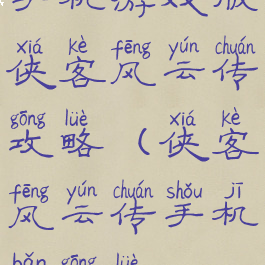 手机游戏版
xiá kè fēng yún chuán
侠客风云传
gōng lüè xiá kè
攻略（侠客
fēng yún chuán shǒu jī
风云传手机
bǎn gōng lüè